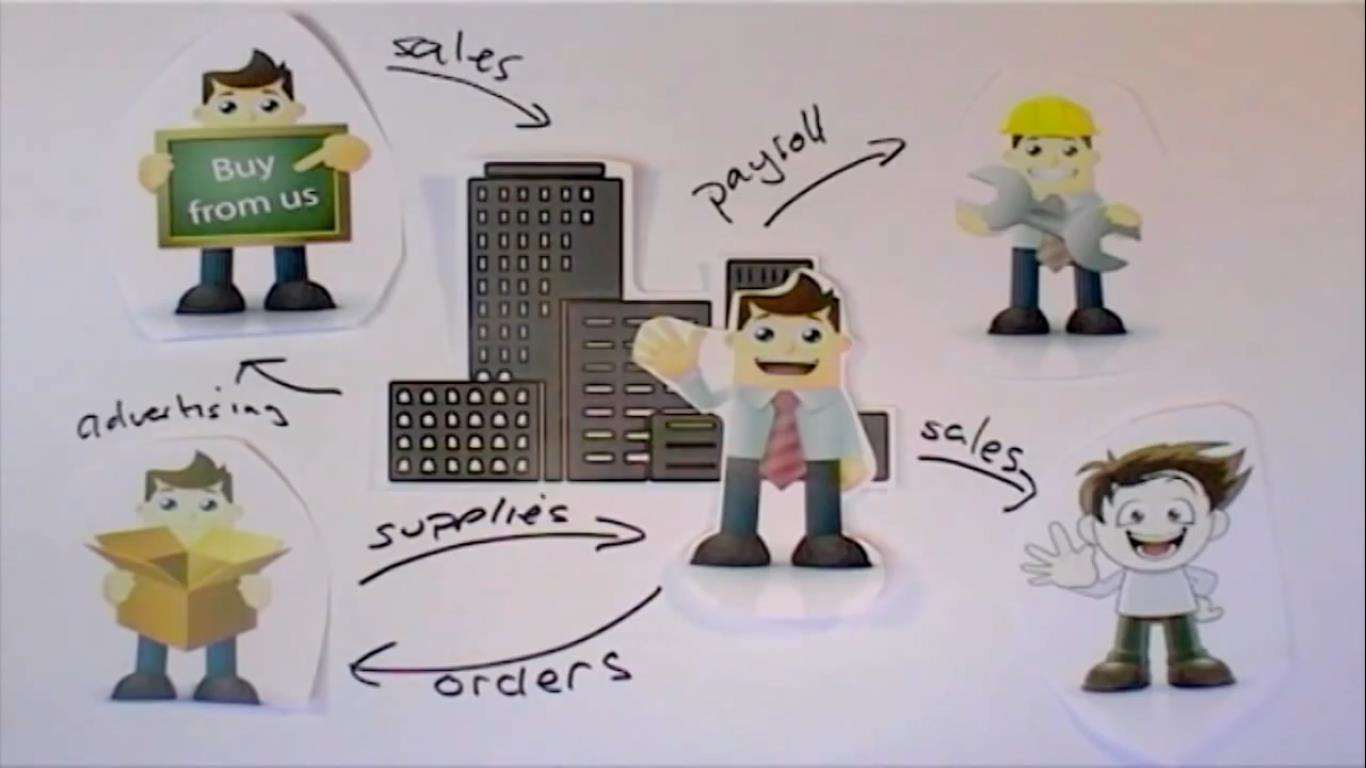 sales
Buy
from us
payroll
advertising
sales
supplies
orders